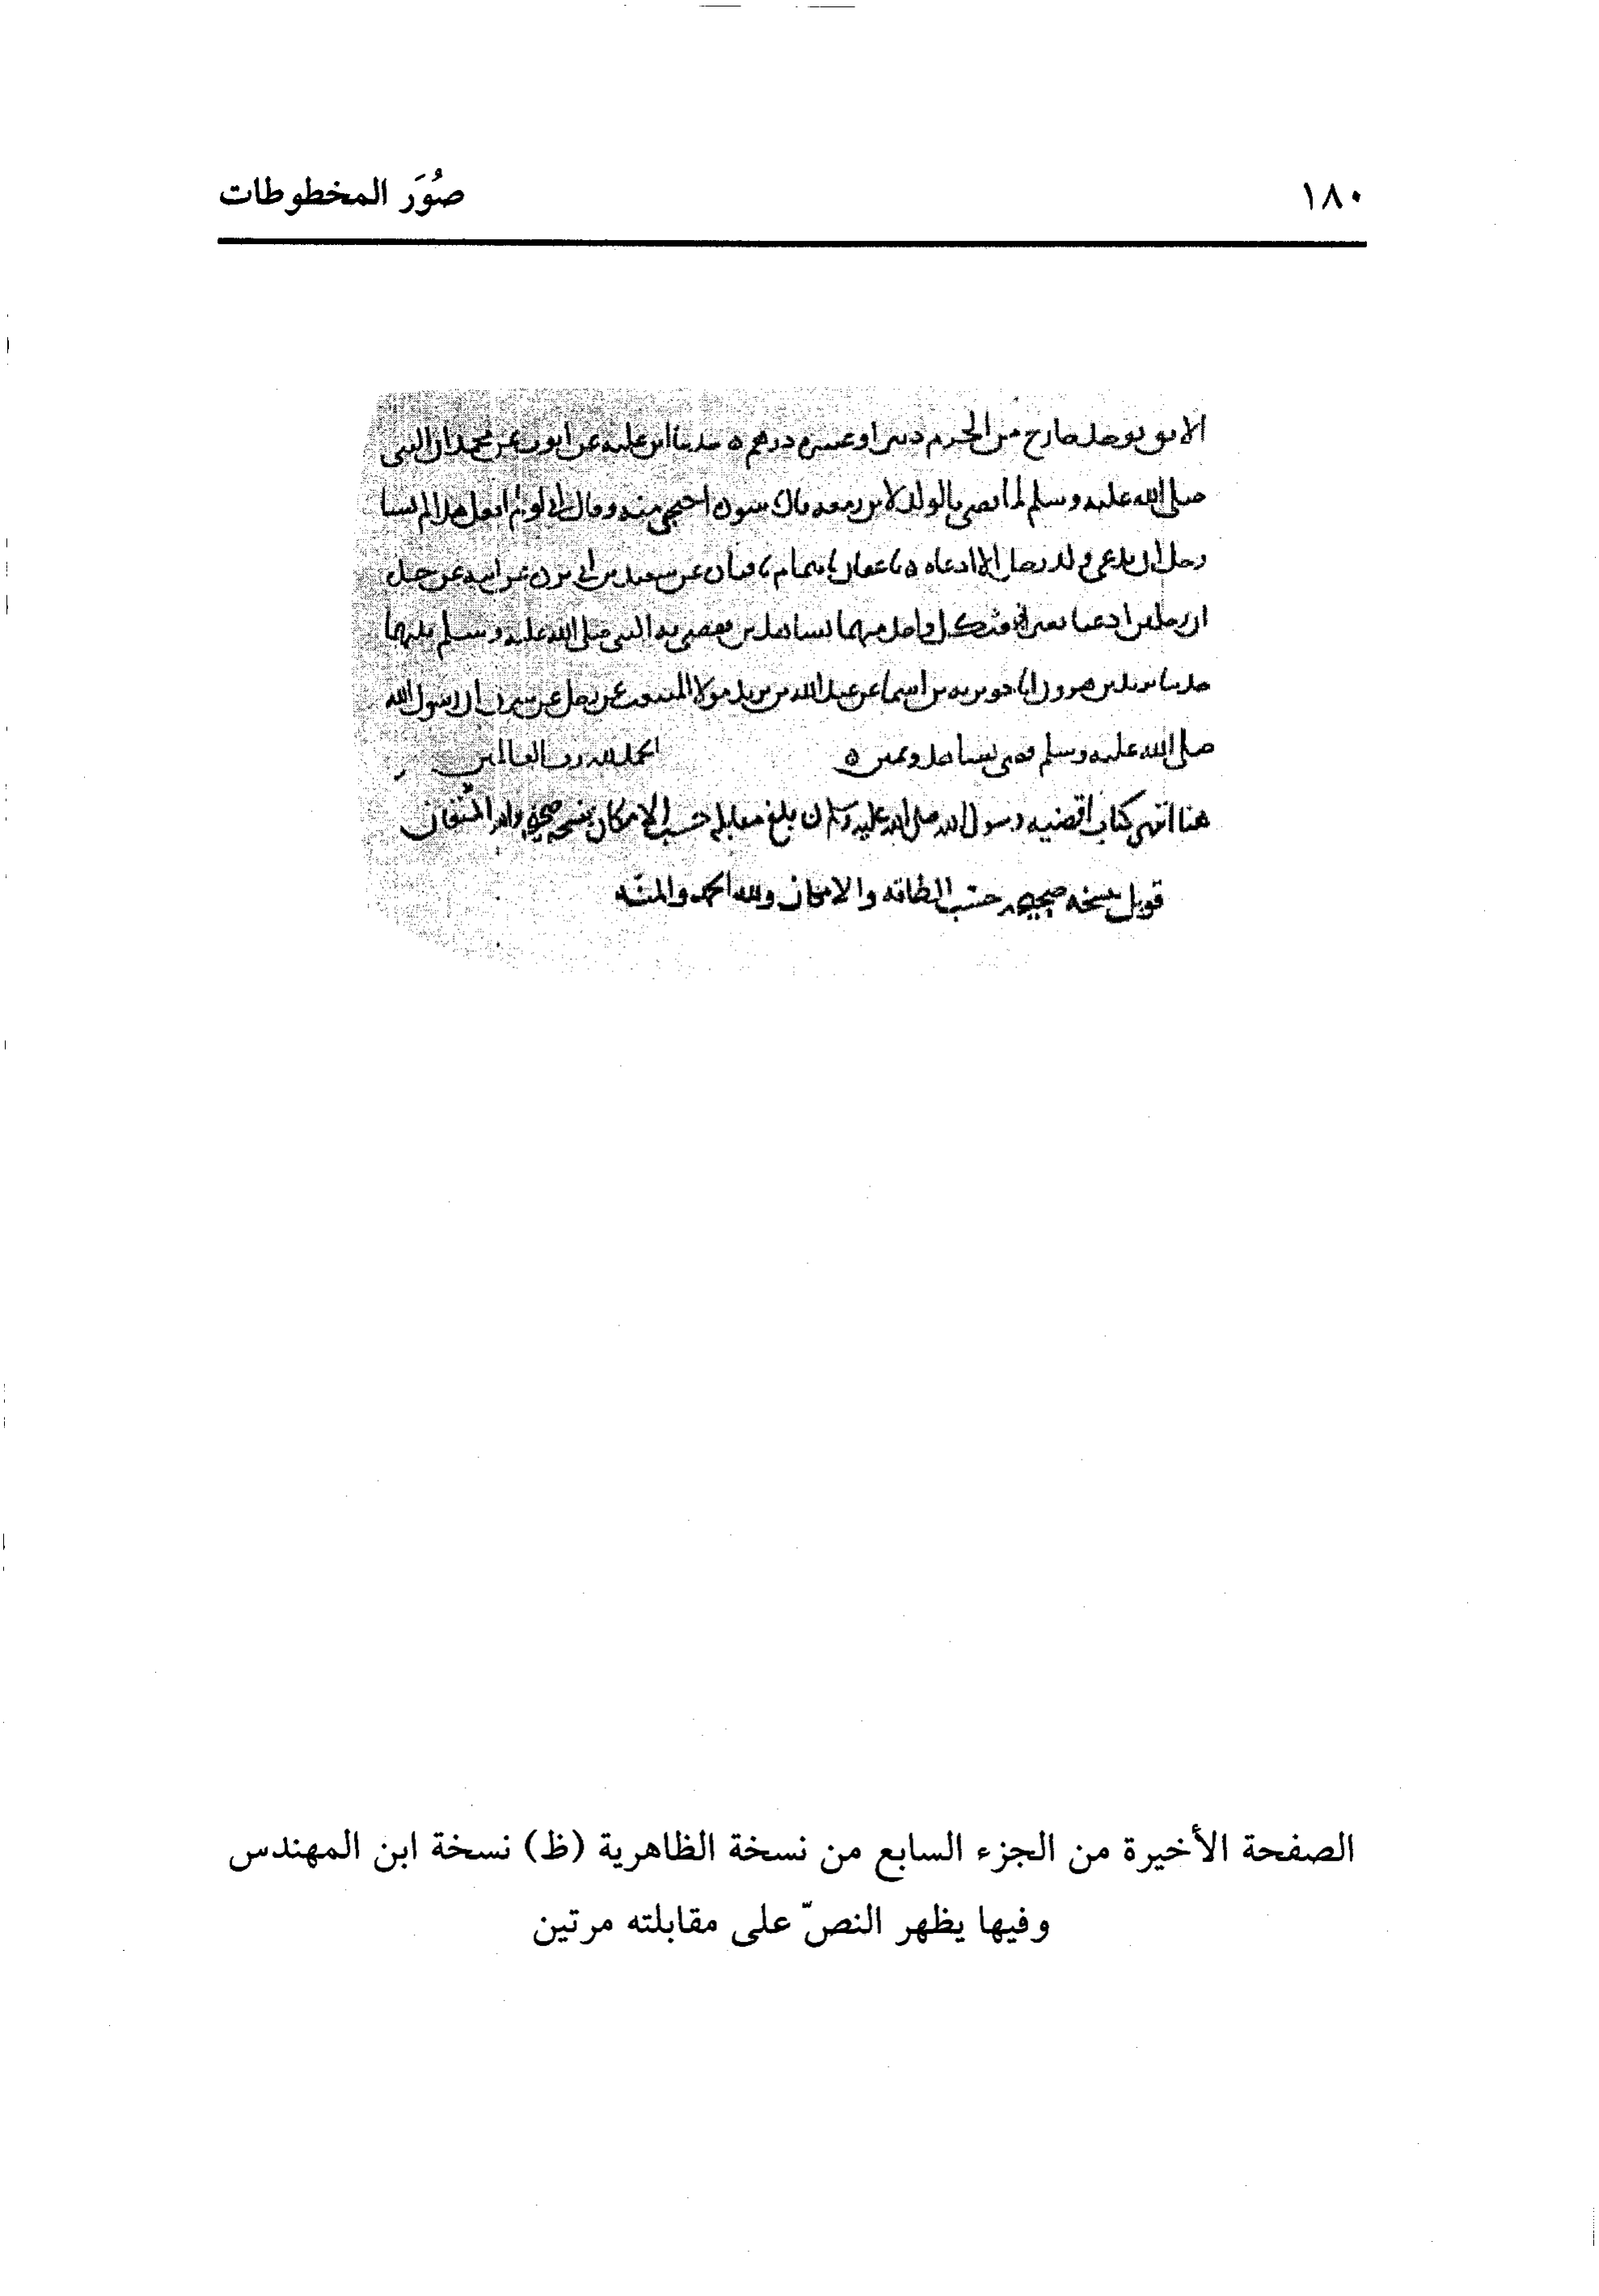 ١٨٠
صُوَر المخطوطات
الابق يوجد خارج من الحرم دينرا وعشره درهم ٥ حدثنا ابن عليه عن ايوب عن محمد ان النبى
صلى الله عليه وسلم لما قضى بالولد لابن زمعه قال سوده احتجبي منه وقال لو لم افعل هذا لم يشا
رجل ان يدعي ولد رجل الا ادعاه ٥ عفان همام قتاده عن سعيد بن ابي برده عن ابيه عن جده
ان رجلين ادعيا بعيرا كل واحد منهما بشاهدين فقضى به النبى صلى الله عليه وسلم بينهما
حدثنا يزيد بن هرون جويريه بن اسما عن عبد الله بن يزيد مولا المنبعث عن رجل عن سرق ان رسول الله
صلى الله عليه وسلم قضى بشاهد ويمين ٥ الحمد لله رب العالمين
هنا انتهى كتاب اقضيه رسول الله صلى الله عليه وسلم بلغ مقابله حسب الامكان بنسخه صحيحه والله المستعان
قوبل بنسخه صحيحه حسب الطاقه والامكان ولله الحمد والمنه
الصفحة الأخيرة من الجزء السابع من نسخة الظاهرية (ظ) نسخة ابن المهندس
وفيها يظهر النصّ على مقابلته مرتين